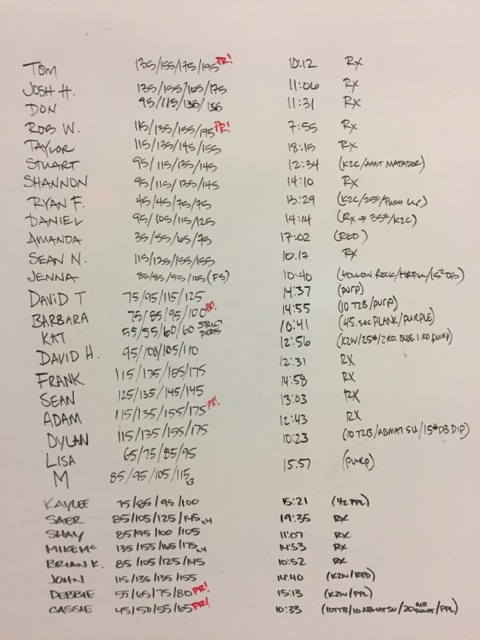 TOM 135/155/175/195 PR! 10:12 RX
JOSH H. 135/155/165/175 11:06 RX
DON 95/115/135/155 11:31 RX
ROB W. 115/135/155/175 PR! 7:55 RX
TAYLOR 115/135/145/155 18:15 RX
STUART 95/115/135/145 12:34 (K2C/ASST MATADOR)
SHANNON 95/115/135/145 14:10 RX
RYAN F. 45/45/75/75 13:29 (K2C/25#/PUSH UP)
DANIEL 95/105/115/125 14:14 (RX → 35#/K2C)
AMANDA 35/55/65/75 17:02 (RED)
SEAN N. 115/135/155/155 10:17 RX
JENNA 85/85/95/105 (FS) 10:40 (HOLLOW ROCK/HRPU/15# DB)
DAVID T 75/95/115/125 14:37 (PURP)
BARBARA 75/85/95/100 PR! 14:55 (10 T2B/PURP)
KAT 55/55/60/60 STRICT PRESS 10:41 (45 SEC PLANK/PURPLE)
DAVID H. 95/100/105/110 12:56
FRANK 115/135/155/175 12:31 RX
SEAN 125/135/145/145 14:58 RX
ADAM 115/135/155/175 PR! 13:03 RX
DYLAN 115/135/155/175 12:43 RX
LISA 65/75/85/95 10:23 (10 T2B/ABMAT SU/15# DB DIP)
M 85/95/105/115 x3 15:57 (PURP)
KAYLEE 75/85/95/100 15:21 (42 PPL)
SAER 85/105/125/145 x4 19:35 RX
SHAY 85/95/100/105 11:07 RX
MIKE MC 135/155/165/175 x4 14:53 RX
BRIAN K. 85/105/125/145 10:52 RX
JOHN 115/135/135/155 14:40 (K2W/RED)
DEBBIE 55/65/75/80 PR! 15:13 (K2W/PPL)
CASSIE 45/50/55/65 PR! 10:33 (10TTB/10 ABMATSU/20 AIR SQUAT/PPL)